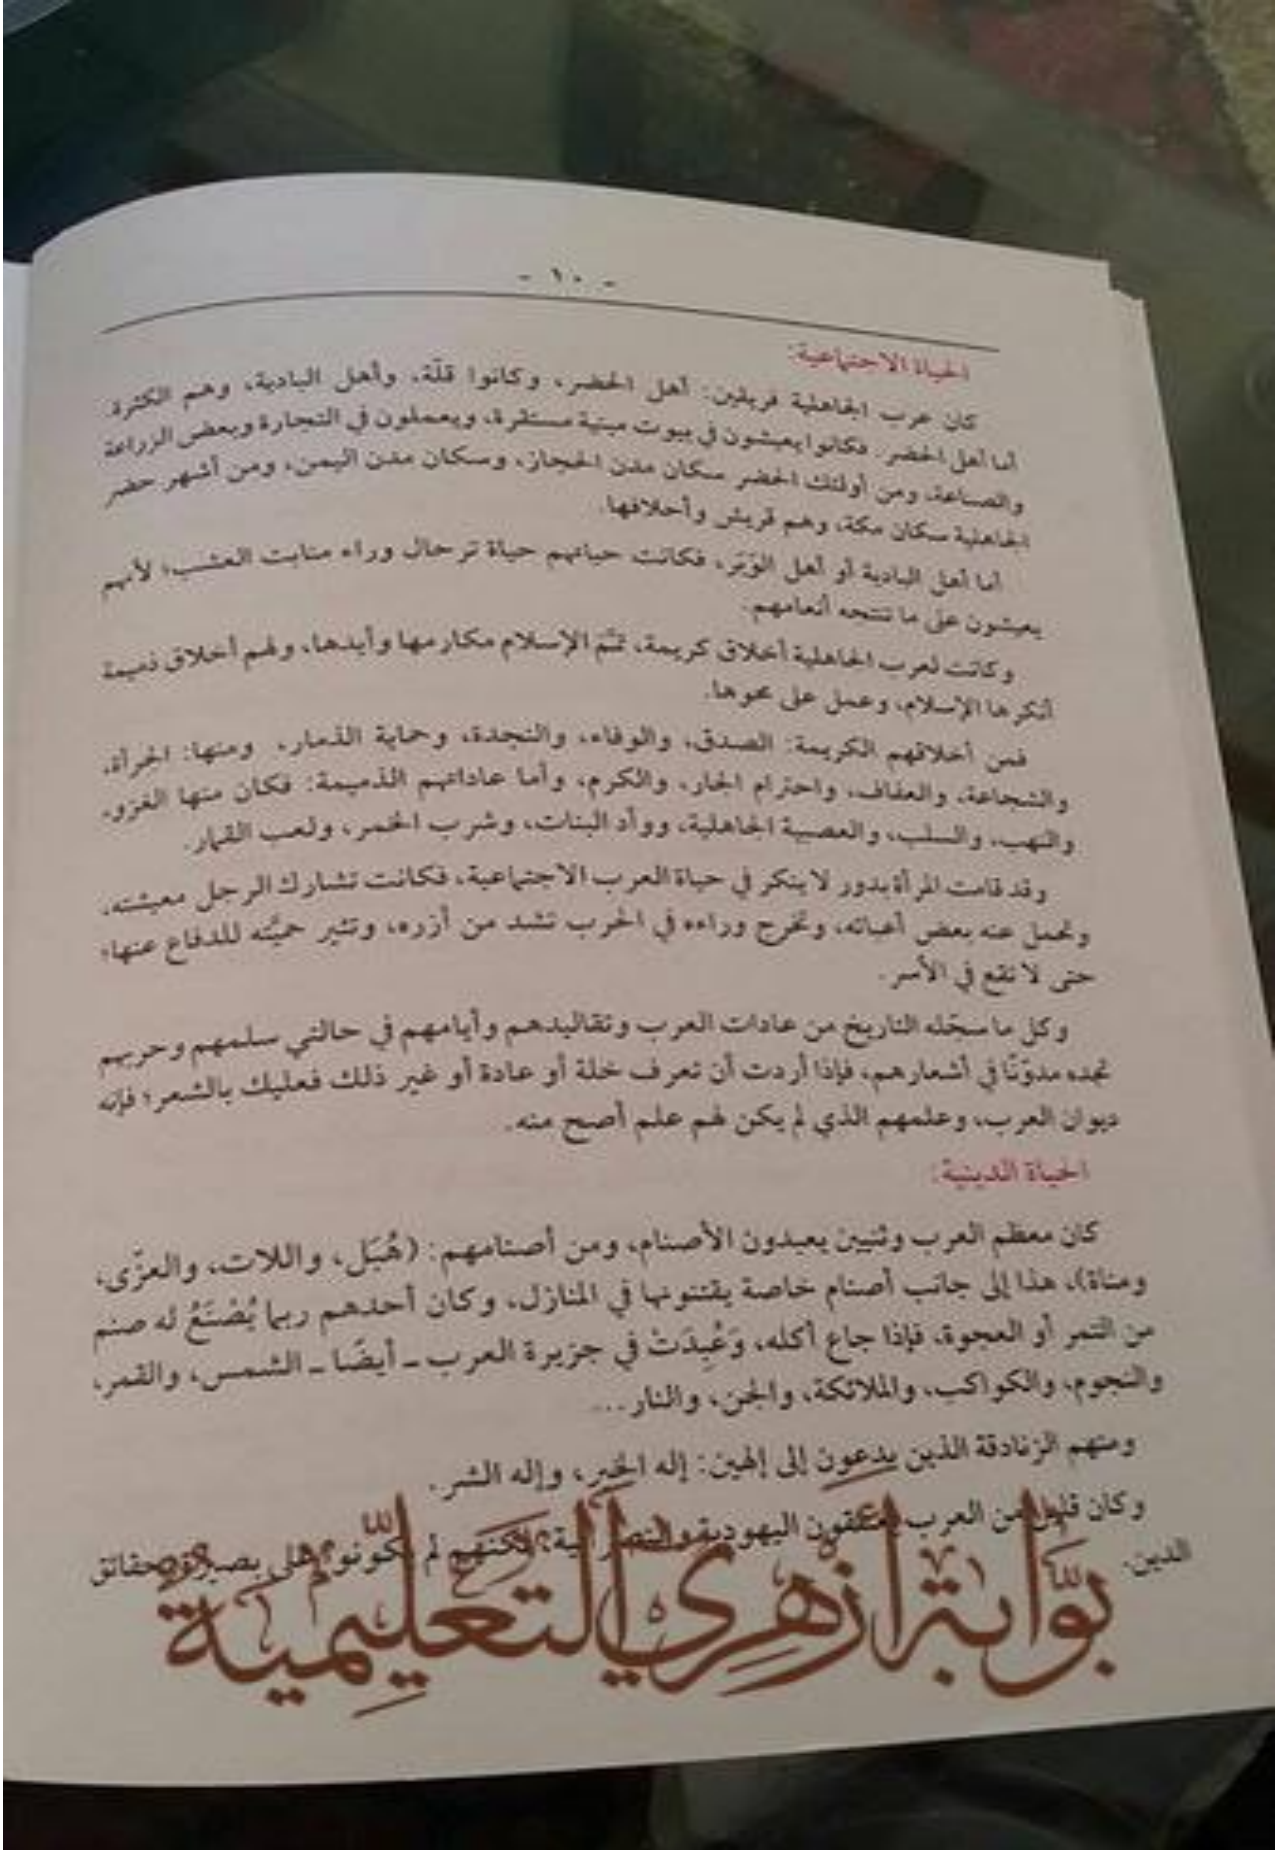 - ١٠ -
الحياة الاجتماعية:
كان عرب الجاهلية فريقين: أهل الحضر، وكانوا قلّة، وأهل البادية، وهم الكثرة.
أما أهل الحضر. فكانوا يعيشون في بيوت مبنية مستقرة، ويعملون في التجارة وبعض الزراعة
والصناعة، ومن أولئك الحضر سكان مدن الحجاز، وسكان مدن اليمن، ومن أشهر حضر
الجاهلية سكان مكة، وهم قريش وأحلافها.
أما أهل البادية أو أهل الوَبَر، فكانت حياتهم حياة ترحال وراء منابت العشب؛ لأنهم
يعيشون على ما تنتجه أنعامهم.
وكانت لعرب الجاهلية أخلاق كريمة، تمَّم الإسلام مكارمها وأيدها، ولهم أخلاق ذميمة
أنكرها الإسلام، وعمل على محوها.
فمن أخلاقهم الكريمة: الصدق، والوفاء، والنجدة، وحماية الذمار، ومنها: الجرأة،
والشجاعة، والعفاف، واحترام الجار، والكرم، وأما عاداتهم الذميمة: فكان منها الغزو،
والنهب، والسلب، والعصبية الجاهلية، ووأد البنات، وشرب الخمر، ولعب القمار.
وقد قامت المرأة بدور لا ينكر في حياة العرب الاجتماعية، فكانت تشارك الرجل معيشته،
وتحمل عنه بعض أعبائه، وتخرج وراءه في الحرب تشد من أزره، وتثير حميَّته للدفاع عنها؛
حتى لا تقع في الأسر.
وكل ما سجّله التاريخ من عادات العرب وتقاليدهم وأيامهم في حالتي سلمهم وحربهم
تجده مدوّنًا في أشعارهم، فإذا أردت أن تعرف خلة أو عادة أو غير ذلك فعليك بالشعر؛ فإنه
ديوان العرب، وعلمهم الذي لم يكن لهم علم أصح منه.
الحياة الدينية:
كان معظم العرب وثنيين يعبدون الأصنام، ومن أصنامهم: (هُبَل، واللات، والعزّى،
ومناة)، هذا إلى جانب أصنام خاصة يقتنونها في المنازل، وكان أحدهم ربما يُصْنَعُ له صنم
من التمر أو العجوة، فإذا جاع أكله، وَعُبِدَتْ في جزيرة العرب ـ أيضًا ـ الشمس، والقمر،
والنجوم، والكواكب، والملائكة، والجن، والنار...
ومنهم الزنادقة الذين يدعون إلى إلهين: إله الخير، وإله الشر.
وكان قليل من العرب يعتنقون اليهودية والنصرانية؛ لكنهم لم يكونوا على بصيرة بحقائق
الدين.
بوابة أزهري التعليمية